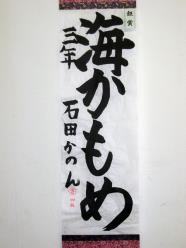 銀賞
海かもめ
三年
石田かのん